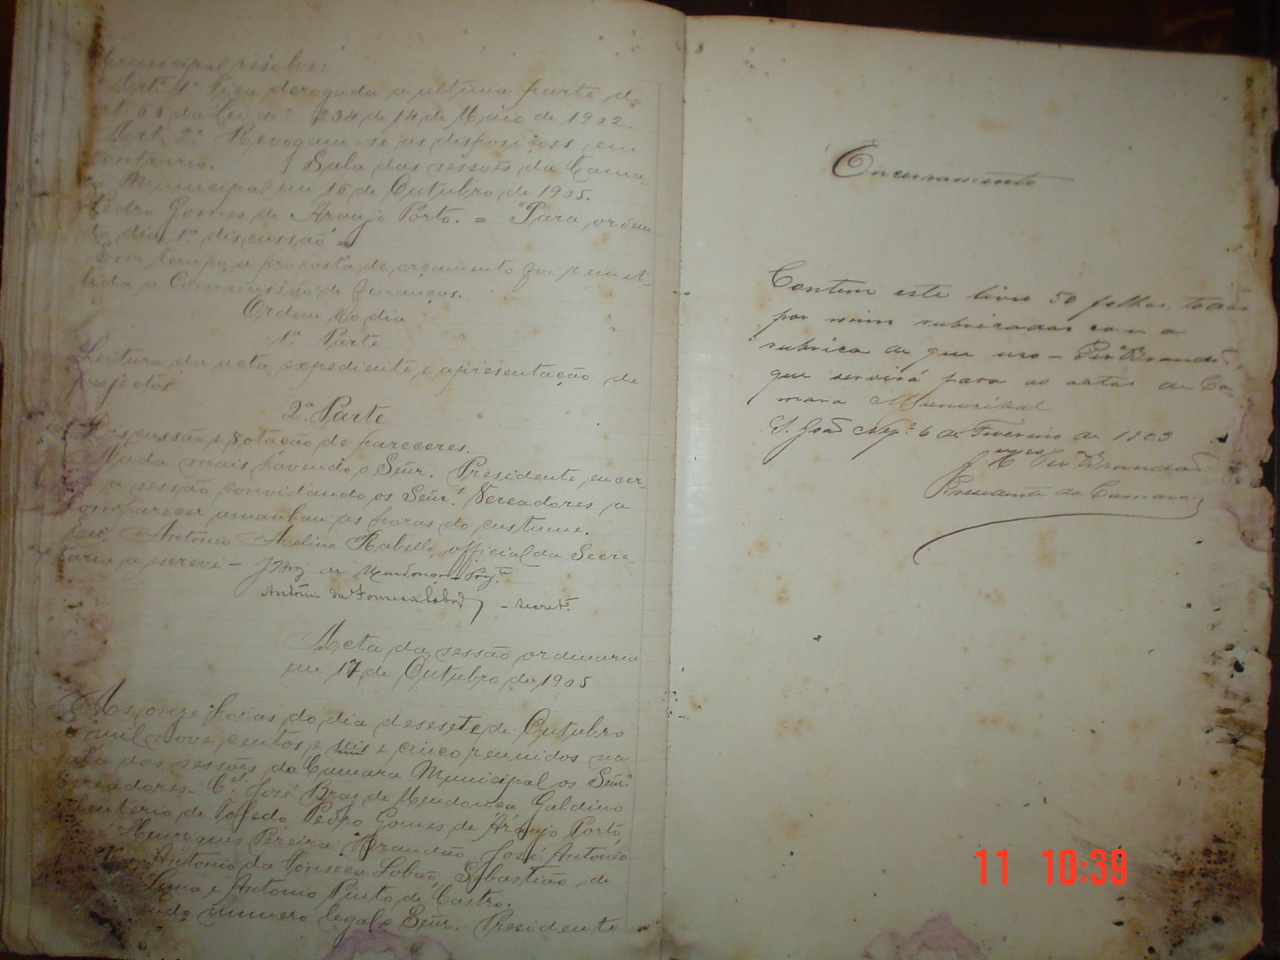 Municipal resolve:
Art. 1º Fica derogada a ultima parte do
art. 69 da Lei nº 234 de 14 de Maio de 1902.
Art. 2º Revogam-se as disposições em
contrario. Sala das sessões da Cama-
Municipal em 16 de Outubro de 1905.
Pedro Gomes de Araujo Porto. = "Para ordem
do dia 1ª discussão" =
Em tempo, a proposta de orçamento foi remet-
tida a Commissão de finanças.
Ordem do dia
1ª Parte
Leitura da acta, expediente, e apresentação de
projectos
2ª Parte
Discussão e votação de pareceres.
Nada mais havendo o Sñr. Presidente encer-
a sessão convidando os Sñrs Vereadores a
comparecer amanhan as horas do custume.
Eu, Antonio Avelino Rabello, official da Secre-
taria a escrevi - J Braz de Mendonça - Prezte
Antônio da Fonseca Lobão - Secretº
Acta da sessão ordinaria
em 17 de Outubro de 1905
As onze horas do dia desesete de Outubro
mil nove centos e seis e cinco reunidos na
sala das sessões da Camara Municipal os Sñrs
Vereadores - Cel José Braz de Mendonça Galdino
Emiterio de Toledo, Pedro Gomes de Araujo Porto,
Henriques Pereira Brandão, José Antonio
Antonio da Fonseca Lobão, Sebastião de
Lima e Antonio Pinto de Castro.
numero legal o Sñr. Presidente
Encerramento
Contem este livro 50 folhas, todas
por mim rubricadas com a
rubrica de que uso - Perª Brandão,
que servirá para as actas da Ca-
mara Municipal
S. João Nepº 6 de Fevereiro de 1903
Perª Brandão
Presidente da Camara
11 10:39